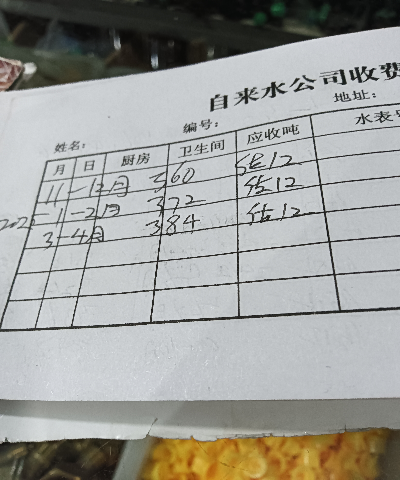 自来水公司收费
姓名: 编号: 地址:
月 日 厨房 卫生间 应收吨 水表
11-12月 360 估12
2025-1-2月 372 估12
3-4月 384 估12